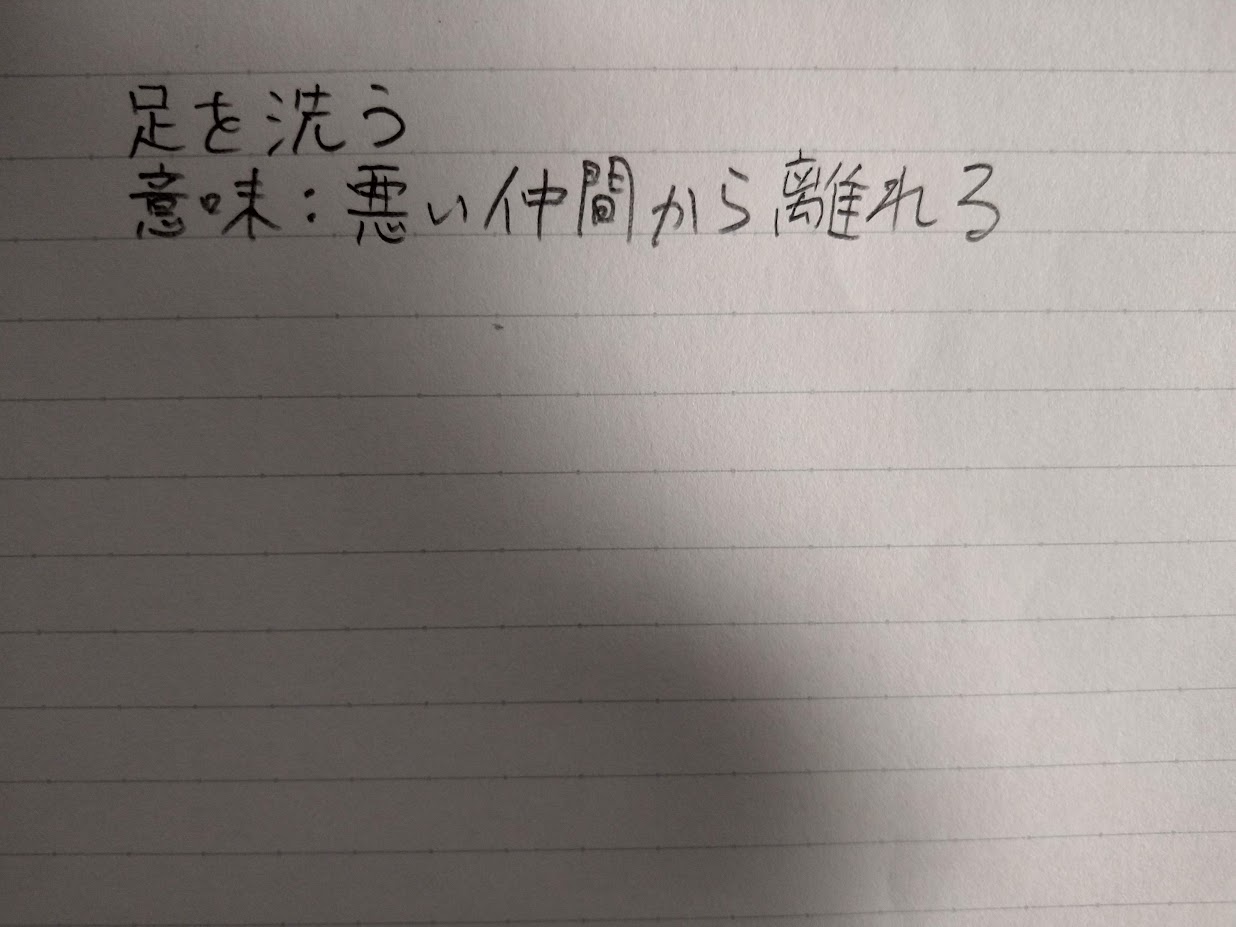 足を洗う
意味:悪い仲間から離れる